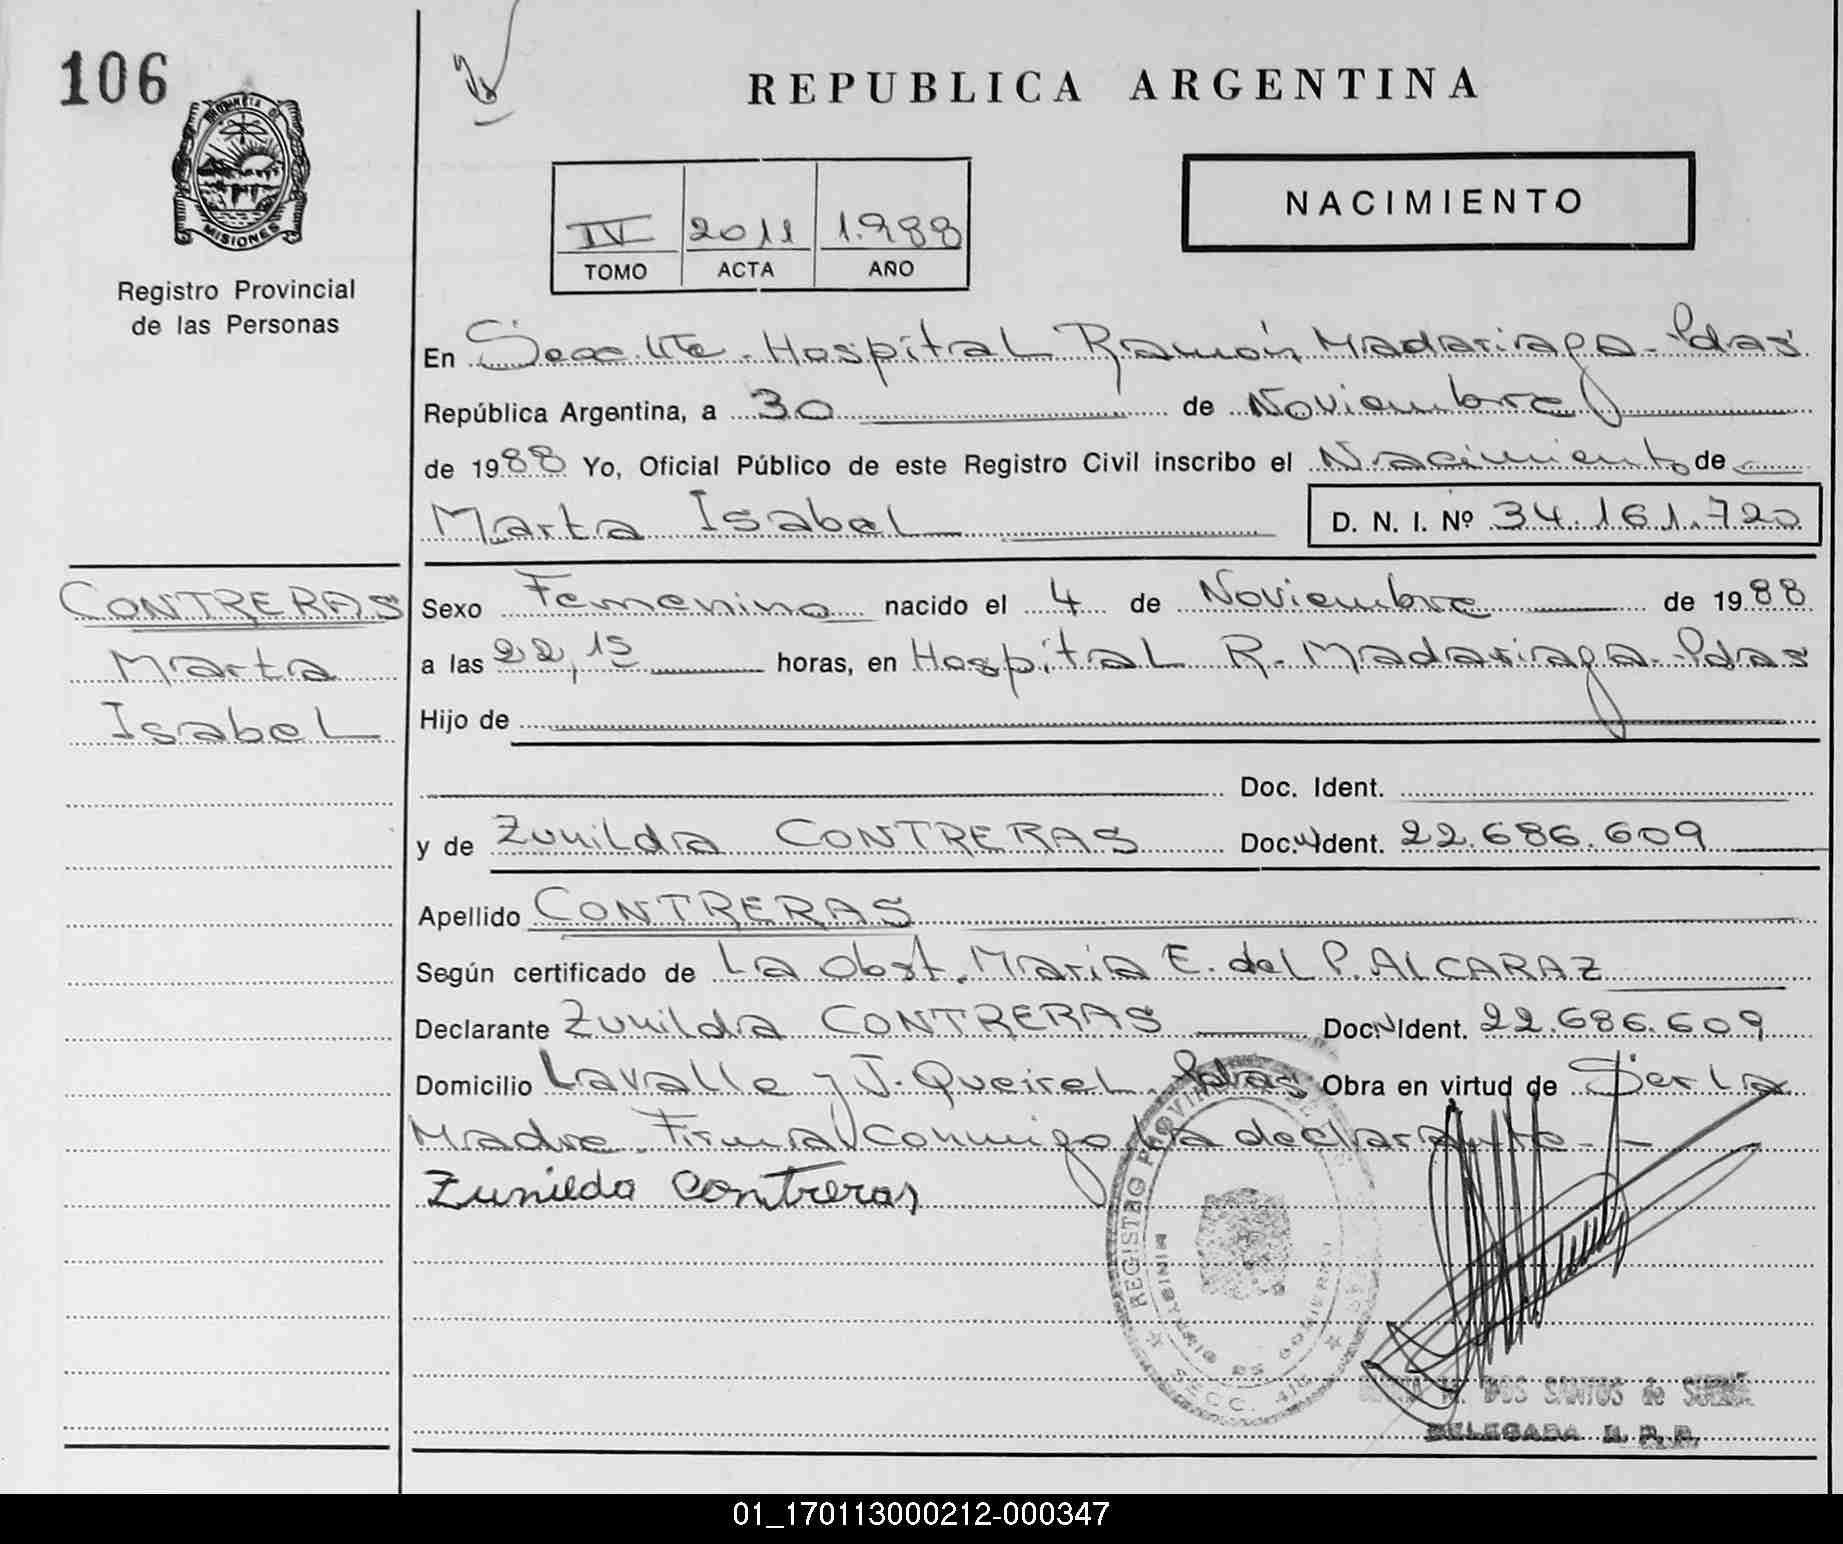 106
PROVINCIA DE
MISIONES
Registro Provincial
de las Personas
REPUBLICA ARGENTINA
IV 2011 1.988
TOMO ACTA AÑO
NACIMIENTO
En Secc. Hospital Ramón Madariaga - Pdas
República Argentina, a 30 de Noviembre
de 1988 Yo, Oficial Público de este Registro Civil inscribo el Nacimiento de
Marta Isabel D. N. I. Nº 34.161.720
CONTRERAS
Marta
Isabel
Sexo Femenino nacido el 4 de Noviembre de 1988
a las 22,15 horas, en Hospital R. Madariaga - Pdas
Hijo de
Doc. Ident.
y de Zunilda CONTRERAS Doc. Ident. 22.686.609
Apellido CONTRERAS
Según certificado de La Obst. Maria E. del P. ALCARAZ
Declarante Zunilda CONTRERAS Doc. Ident. 22.686.609
Domicilio Lavalle y J. Queirel - Pdas Obra en virtud de Ser La
Madre. Firma Conmigo La declarante.-
Zunilda Contreras
REGISTRO PROVINCIAL DE
MINISTERIO DE GOBIERNO
SECC.
M. DOS SANTOS de
DELEGADA R. P. P.
01_170113000212-000347